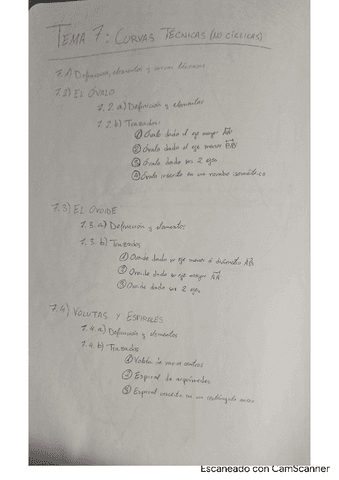 TEMA 7: CURVAS TÉCNICAS (NO CÍCLICAS)
7.1) Definición, elementos y
7.2) EL ÓVALO
7.2.a) Definición y elementos
7.2.b) Trazados:
① Óvalo dado el eje mayor
② Óvalo dado el eje menor
③ Óvalo dado sus 2 ejes
④ Óvalo inscrito en un rombo isométrico
7.3) EL OVOIDE
7.3.a) Definición y elementos
7.3.b) Trazados
① Ovoide dado su eje menor o diámetro
② Ovoide dado su eje mayor
③ Ovoide dado sus 2 ejes
7.4) VOLUTAS Y ESPIRALES
7.4.a) Definición y elementos
7.4.b) Trazados
① Voluta de varios centros
② Espiral de Arquímedes
③ Espiral inscrita en un rectángulo áureo
Escaneado con CamScanner